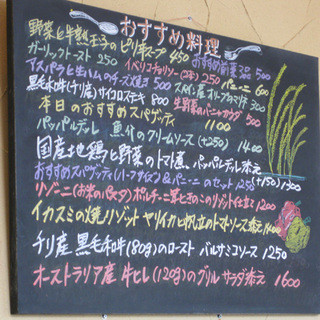 おすすめ料理
野菜と半熟玉子のピリ辛スープ 450
おすすめ前菜 500
ガーリックトースト 250
イベリコチョリソー(2本) 250 パニーニ 600
アスパラと生ハムのチーズ焼き 500
スペイン産オリーブのマリネ 300
黒毛和牛(チリ産)サイコロステーキ 800
生野菜のバーニャカウダ 500
本日のおすすめスパゲッティ 1100
パッパルデッレ 魚介のクリームソース (+250) 1400
国産地鶏と野菜のトマト煮、パッパルデッレ添え (+150) 1300
おすすめスパゲッティ(ハーフサイズ)&パニーニのセット 1250
リゾーニ(お米のパスタ) ポルチーニ茸ときのこのリゾット仕立て 1200
イカスミの焼リゾット ヤリイカと帆立のトマトソース添え 1400
チリ産 黒毛和牛(80g)のロースト バルサミコソース 1250
オーストラリア産 牛ヒレ(120g)のグリル サラダ添え 1600